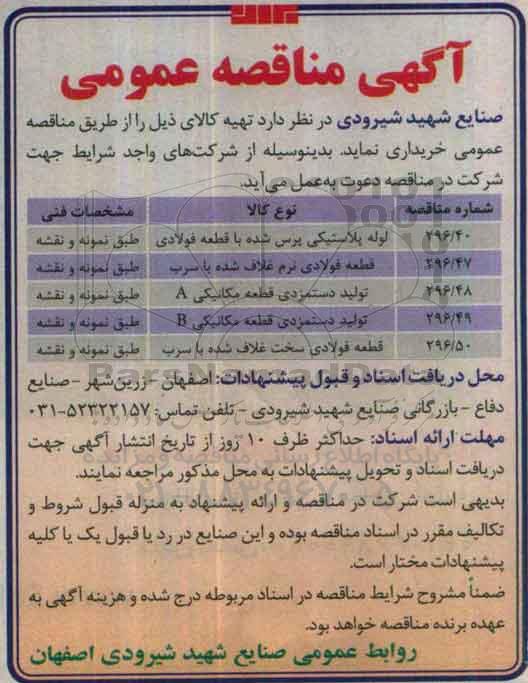 آگهی مناقصه عمومی
صنایع شهید شیرودی در نظر دارد تهیه کالای ذیل را از طریق مناقصه
عمومی خریداری نماید. بدینوسیله از شرکت‌های واجد شرایط جهت
شرکت در مناقصه دعوت به‌عمل می‌آید.
شماره مناقصه نوع کالا مشخصات فنی
۲۹۶/۴۰ لوله پلاستیکی پرس شده با قطعه فولادی طبق نمونه و نقشه
۲۹۶/۴۷ قطعه فولادی نرم غلاف شده با سرب طبق نمونه و نقشه
۲۹۶/۴۸ تولید دستمزدی قطعه مکانیکی A طبق نمونه و نقشه
۲۹۶/۴۹ تولید دستمزدی قطعه مکانیکی B طبق نمونه و نقشه
۲۹۶/۵۰ قطعه فولادی سخت غلاف شده با سرب طبق نمونه و نقشه
محل دریافت اسناد و قبول پیشنهادات: اصفهان - زرین‌شهر - صنایع
دفاع - بازرگانی صنایع شهید شیرودی - تلفن تماس: ۵۲۲۲۲۱۵۷-۰۳۱
مهلت ارائه اسناد: حداکثر ظرف ۱۰ روز از تاریخ انتشار آگهی جهت
دریافت اسناد و تحویل پیشنهادات به محل مذکور مراجعه نمایند.
بدیهی است شرکت در مناقصه و ارائه پیشنهاد به منزله قبول شروط و
تکالیف مقرر در اسناد مناقصه بوده و این صنایع در رد یا قبول یک یا کلیه
پیشنهادات مختار است.
ضمناً مشروح شرایط مناقصه در اسناد مربوطه درج شده و هزینه آگهی به
عهده برنده مناقصه خواهد بود.
روابط عمومی صنایع شهید شیرودی اصفهان